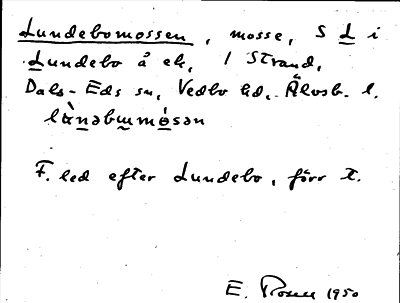 Lundebomossen, mosse, S L i
Lundebo å ek, 1 Strand,
Dals-Eds sn, Vedbo hd, Älvsb. l.
F. led efter Lundebo, förr t.
E. 1950